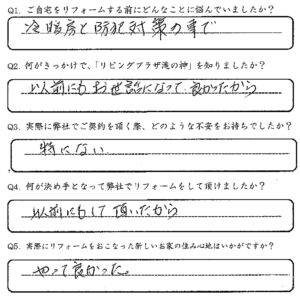 Q1. ご自宅をリフォームする前にどんなことに悩んでいましたか?
冷暖房と防犯対策の事で
Q2. 何がきっかけで、「リビングプラザ滝の神」を知りましたか?
以前にもお世話になって良かったから
Q3. 実際に弊社でご契約を頂く際、どのような不安をお持ちでしたか?
特にない
Q4. 何が決め手となって弊社でリフォームをして頂けましたか?
以前にもして頂いたから
Q5. 実際にリフォームをおこなった新しいお家の住み心地はいかがですか?
やって良かった。